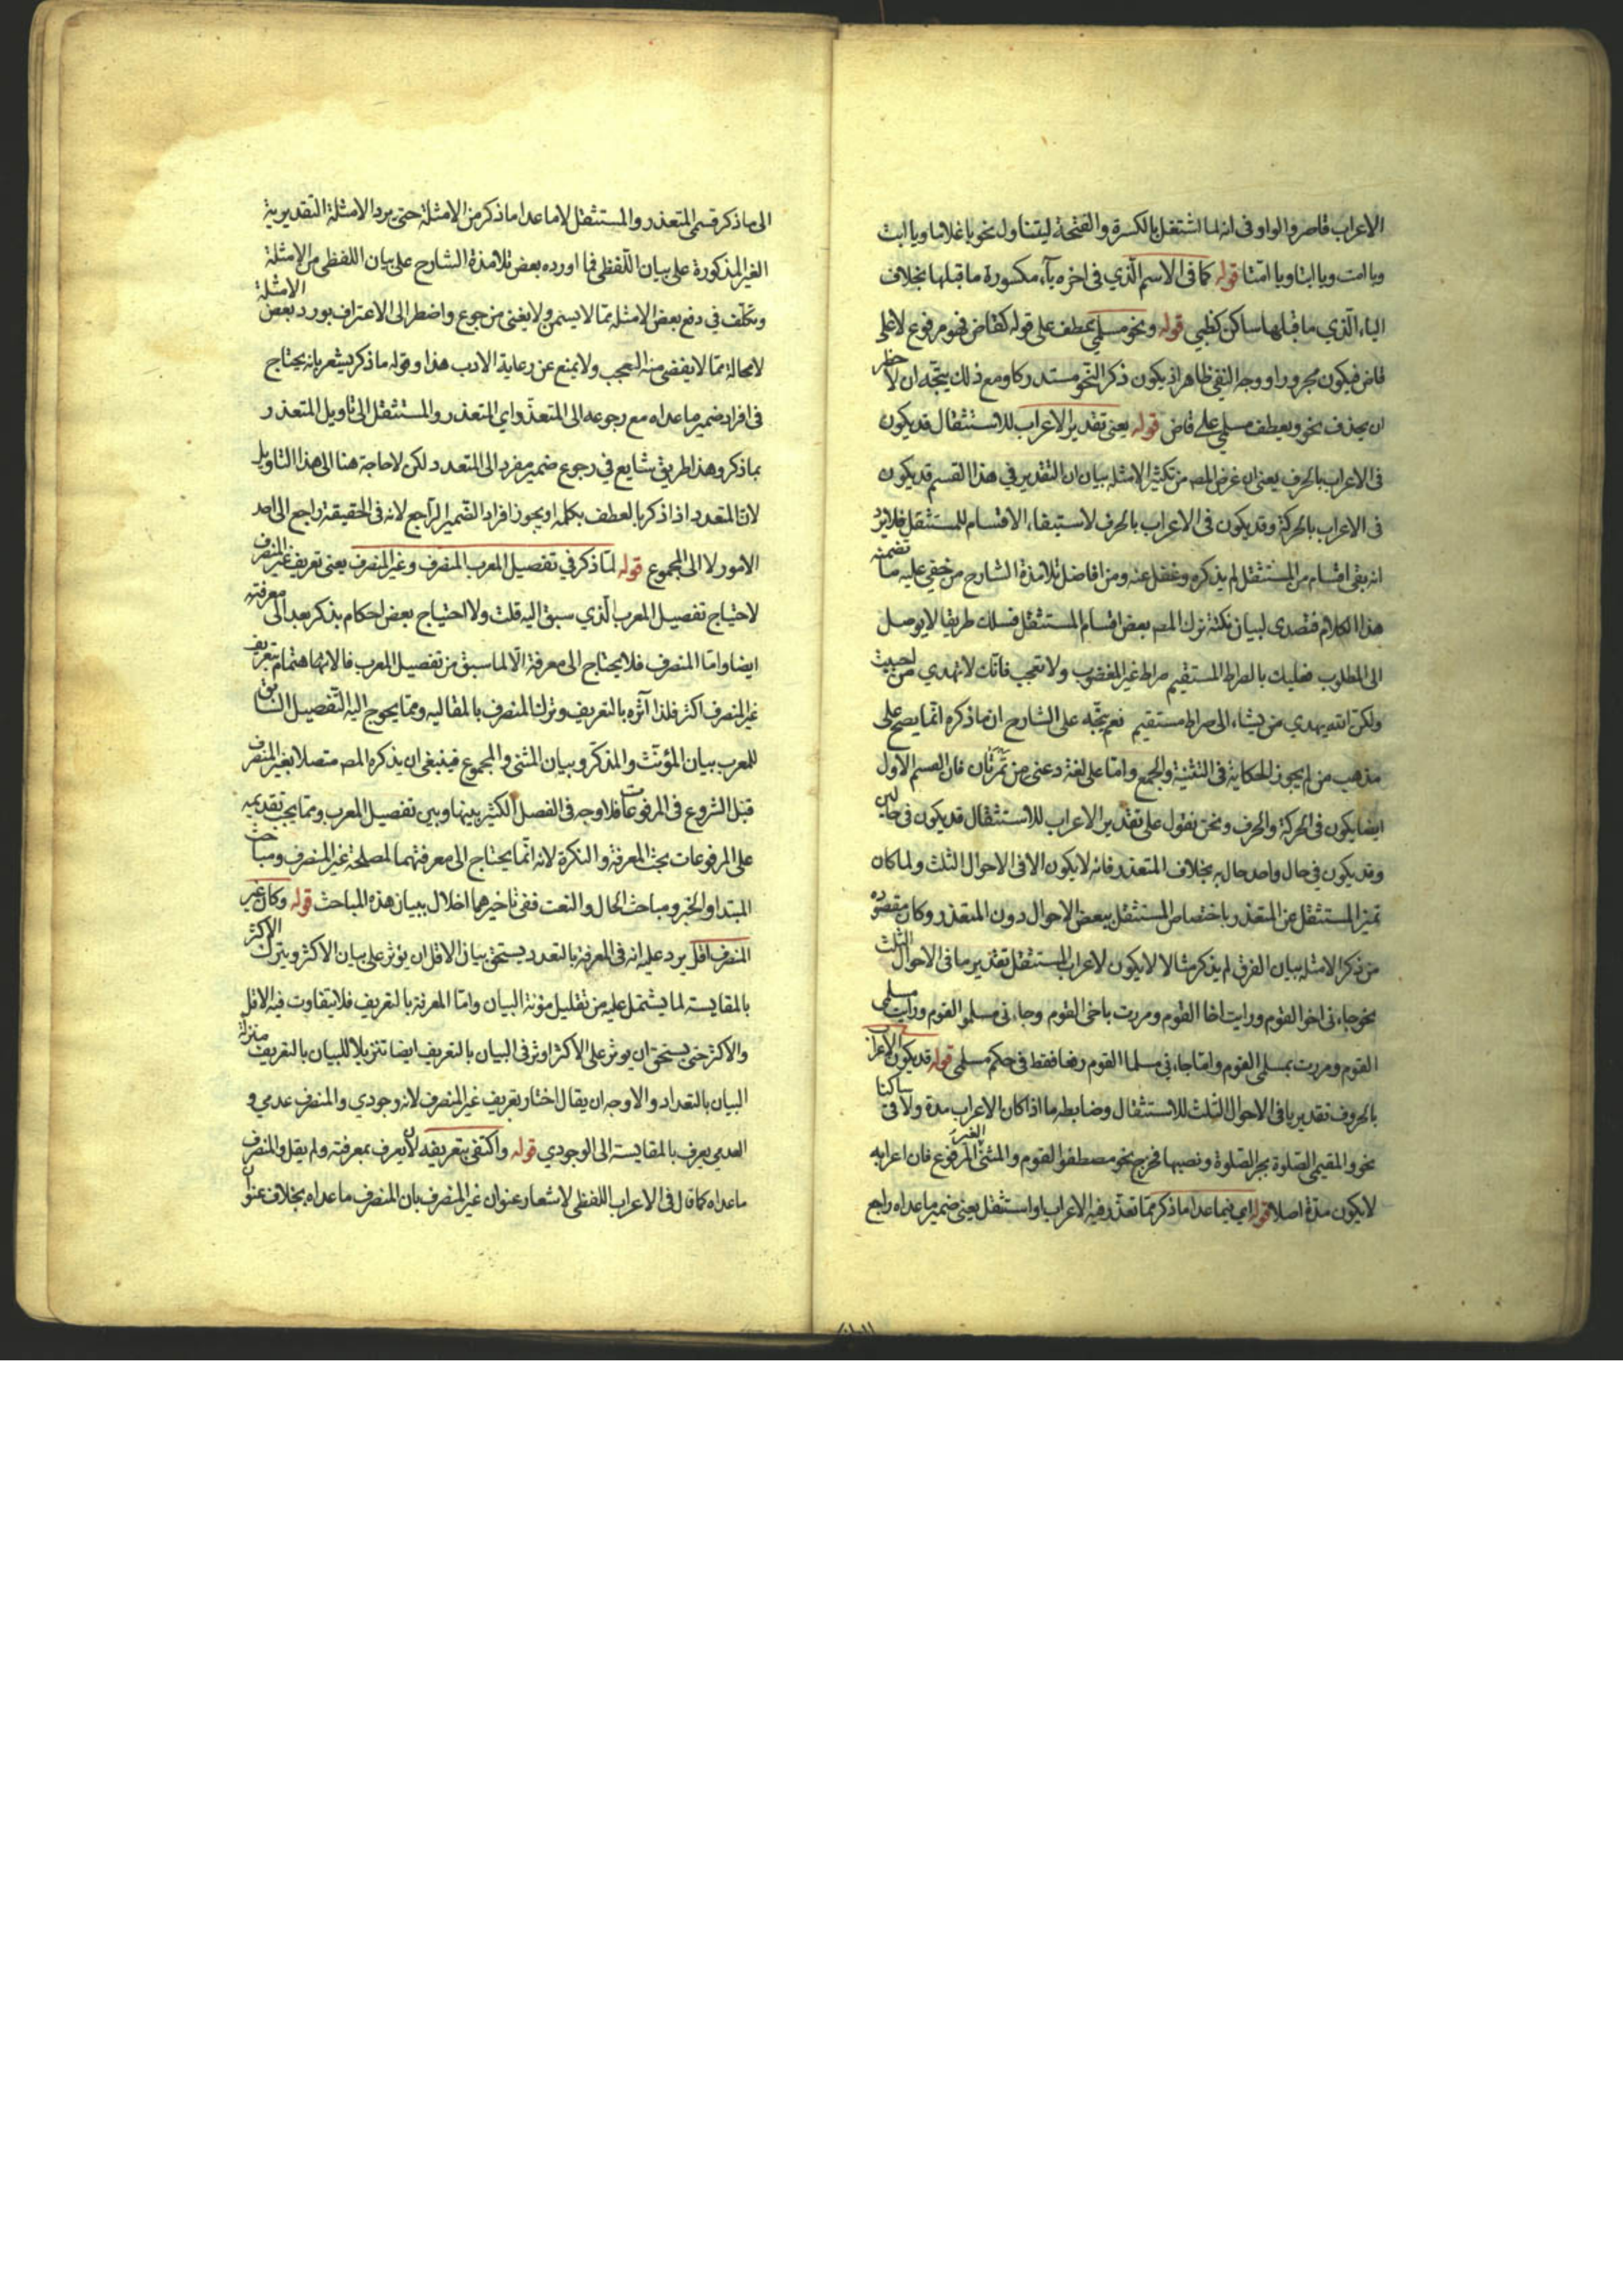 الاعراب قاصر والواو فى انه لما اشتغل بالكسرة والفتحة ليتناول نحو يا غلاما ويا ابت
ويا امت ويا ابتا ويا امتا قوله كما فى الاسم الذي فى اخره ياء مكسورة ما قبلها بخلاف
الياء الذي ما قبلها ساكن كظبي قوله ونحو مسلمي عطف على قوله كقاض فهو مرفوع لا على
قاض فيكون مجرورا ووجه النفي ظاهر اذ يكون ذكر النحو مستدركا ومع ذلك يتجه ان لا
ان يحذف نحو ويعطف مسلمي على قاض قوله يعنى تقدير الاعراب للاستثقال قد يكون
فى الاعراب بالحرف يعنى ان غرض المصـ من تكثير الامثلة بيان ان التقدير في هذا القسم قد يكون
فى الاعراب بالحركة وقد يكون فى الاعراب بالحرف لاستيفاء الاقسام للمستثقل فلا يرد
انه بقى اقسام من المستثقل لم يذكره وغفل عنه ومن افاضل تلامذة الشارح من خفي عليه ما تضمنه
هذا الكلام فتصدى لبيان نكتة ترك المصـ بعض اقسام المستثقل فسلك طريقا لا يوصل
الى المطلوب فعليك بالصراط المستقيم صراط غير المغضوب ولا تعجب فانك لا تهدي من احببت
ولكن الله يهدي من يشاء الى صراط مستقيم نعم يتجه على الشارح ان ما ذكره انما يصح على
مذهب من لم يجوز الحكاية فى التثنية والجمع واما على لغة دعنى من تمرتان فان القسم الاول
ايضا يكون فى الحركة والحرف ونحن نقول على تقدير الاعراب للاستثقال قد يكون فى حالين
وقد يكون في حال واحد حاليه بخلاف المتعذر فانه لا يكون الا فى الاحوال الثلث ولما كان
تميز المستثقل عن المتعذر باختصاص المستثقل ببعض الاحوال دون المتعذر وكان مقصوده
من ذكر الامثلة بيان الفرق لم يذكر مثالا لا يكون لاعراب المستثقل تقدير ما فى الاحوال الثلث
نحو جاءنى اخو القوم ورايت اخا القوم ومررت باخى القوم وجاءنى مسلمو القوم ورايت مسلمى
القوم ومررت بمسلمى القوم واما جاءني مسلما القوم رفعا فقط فى حكم مسلمى قوله قد يكون الاعراب
بالحروف تقديريا فى الاحوال الثلث للاستثقال وضابطه ما اذا كان الاعراب مدة ولاقى ساكنا
نحو والمقيمى الصلوة بجر الصلوة ونصبها فخرج نحو مصطفو القوم والمثنى الغير المرفوع فان اعرابه
لا يكون مدة اصلا قوله اي فيما عدا ما ذكر مما تعذر فيه الاعراب او استثقل يعنى ضمير ما عداه راجع
الى ما ذكر قسمى المتعذر والمستثقل لا ما عدا ما ذكر من الامثلة حتى يرد الامثلة التقديرية
الغير المذكورة على بيان اللفظى فما اورده بعض تلامذة الشارح على بيان اللفظى من الامثلة
وتكلف في دفع بعض الامثلة مما لا يسمن ولا يغنى من جوع واضطر الى الاعتراف بورد بعض الامثلة
لا محالة مما لا يقضى منه العجب ولا يمنع عن رعاية الادب هذا وقوله ما ذكر يشعر بانه يحتاج
فى افراد ضمير ما عداه مع رجوعه الى المتعدد اي المتعذر والمستثقل الى تاويل المتعذر
بما ذكر وهذا طريق شايع في رجوع ضمير مفرد الى المتعدد لكن لا حاجة هنا الى هذا التاويل
لان المتعدد اذا ذكر بالعطف بكلمة او يجوز افراد الضمير الراجع لانه فى الحقيقة راجع الى احد
الامور لا الى المجموع قوله لما ذكر في تفصيل المعرب المنصرف وغير المنصرف يعنى تعريف غير المنصرف
لاحتياج تفصيل المعرب الذي سبق اليه قلت ولاحتياج بعض احكام يذكر بعد الى معرفته
ايضا واما المنصرف فلا يحتاج الى معرفة الا لما سبق من تفصيل المعرب فالاهتمام بتعريف
غير المنصرف اكثر فلذا آثره بالتعريف وترك المنصرف بالمقاليه ومما يحوج اليه التفصيل السابق
للمعرب بيان المؤنث والمذكر وبيان المثنى والمجموع فينبغى ان يذكره المصـ متصلا بغير المنصرف
قبل الشروع فى المرفوعات فلا وجه فى الفصل الكثير بينها وبين تفصيل المعرب ومما يجب تقديمه
على المرفوعات بحث المعرفة والنكرة لانه انما يحتاج الى معرفتهما لمصلحة غير المنصرف ومباحث
المبتدا والخبر ومباحث الحال والنعت ففى تاخيرهما اخلال ببيان هذه المباحث قوله وكان غير
المنصرف اقل يرد عليه انه فى المعرفة بالتعدد يستحق بيان الاقل ان يؤثر على بيان الاكثر ويترك الاكثر
بالمقايسة لما يشتمل عليه من تقليل مؤنة البيان واما المعرفة بالتعريف فلا يتفاوت فيه الاقل
والاكثر حتى يستحق ان يوثر على الاكثر اوثر فى البيان بالتعريف ايضا تنزيلا للبيان بالتعريف منزلة
البيان بالتعداد والاوجه ان يقال اختار تعريف غير المنصرف لانه وجودي والمنصرف عدمي و
العدمي يعرف بالمقايسة الى الوجودي قوله واكتفى بتعريفه لان يعرف بمعرفته ولم يقل والمنصرف
ما عداه كما قال فى الاعراب اللفظى لاشعار عنوان غير المنصرف بان المنصرف ما عداه بخلاف عنوان